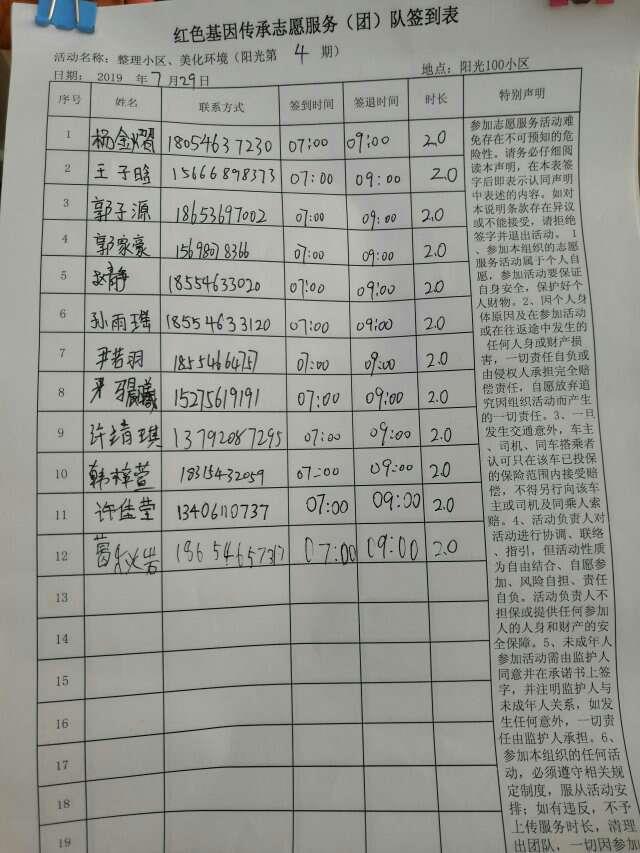 红色基因传承志愿服务（团）队签到表
活动名称：整理小区、美化环境（阳光第 4 期）
日期： 2019 年 7 月 29 日
地点：阳光100小区
序号 姓名 联系方式 签到时间 签退时间 时长 特别声明
1 杨金耀 18054637230 07:00 09:00 2.0
2 王子晗 15666898373 07:00 09:00 2.0
3 郭子源 18653697002 07:00 09:00 2.0
4 郭家豪 15698078366 07:00 09:00 2.0
5 赵静 18554633020 07:00 09:00 2.0
6 孙雨瑶 18554633120 07:00 09:00 2.0
7 尹若羽 18554664757 07:00 09:00 2.0
8 15275619191 07:00 09:00 2.0
9 许靖琪 13792087295 07:00 09:00 2.0
10 韩梓萱 18315432059 07:00 09:00 2.0
11 许佳莹 07:00 09:00 2.0
12 07:00 09:00 2.0
13
14
15
16
17
18
19
参加志愿服务活动难
免存在不可预知的危
险性。请务必仔细阅
读本声明，在本表签
字后即表示认同声明
中表述的内容。如对
本说明条款存在异议
或不能接受，请拒绝
签字并退出活动。 1
、参加本组织的志愿
服务活动属于个人自
愿，参加活动要保证
自身安全，保护好个
人财物。2、因个人身
体原因及在参加活动
或在往返途中发生的
任何人身或财产损
害，一切责任自负或
由侵权人承担完全赔
偿责任，自愿放弃追
究因组织活动而产生
的一切责任。3、一旦
发生交通意外，车主
、司机、同车搭乘者
认可只在该车已投保
的保险范围内接受赔
偿，不得另行向该车
主或司机及同乘人索
赔。4、活动负责人对
活动进行协调、联络
、指引，但活动性质
为自由结合、自愿参
加、风险自担、责任
自负。活动负责人不
担保或提供任何参加
人的人身和财产的安
全保障。5、未成年人
参加活动需由监护人
同意并在承诺书上签
字，并注明监护人与
未成年人关系，如发
生任何意外，一切责
任由监护人承担。6、
参加本组织的任何活
动，必须遵守相关规
定制度，服从活动安
排；如有违反，不予
上传服务时长，清理
出团队，一切因参加